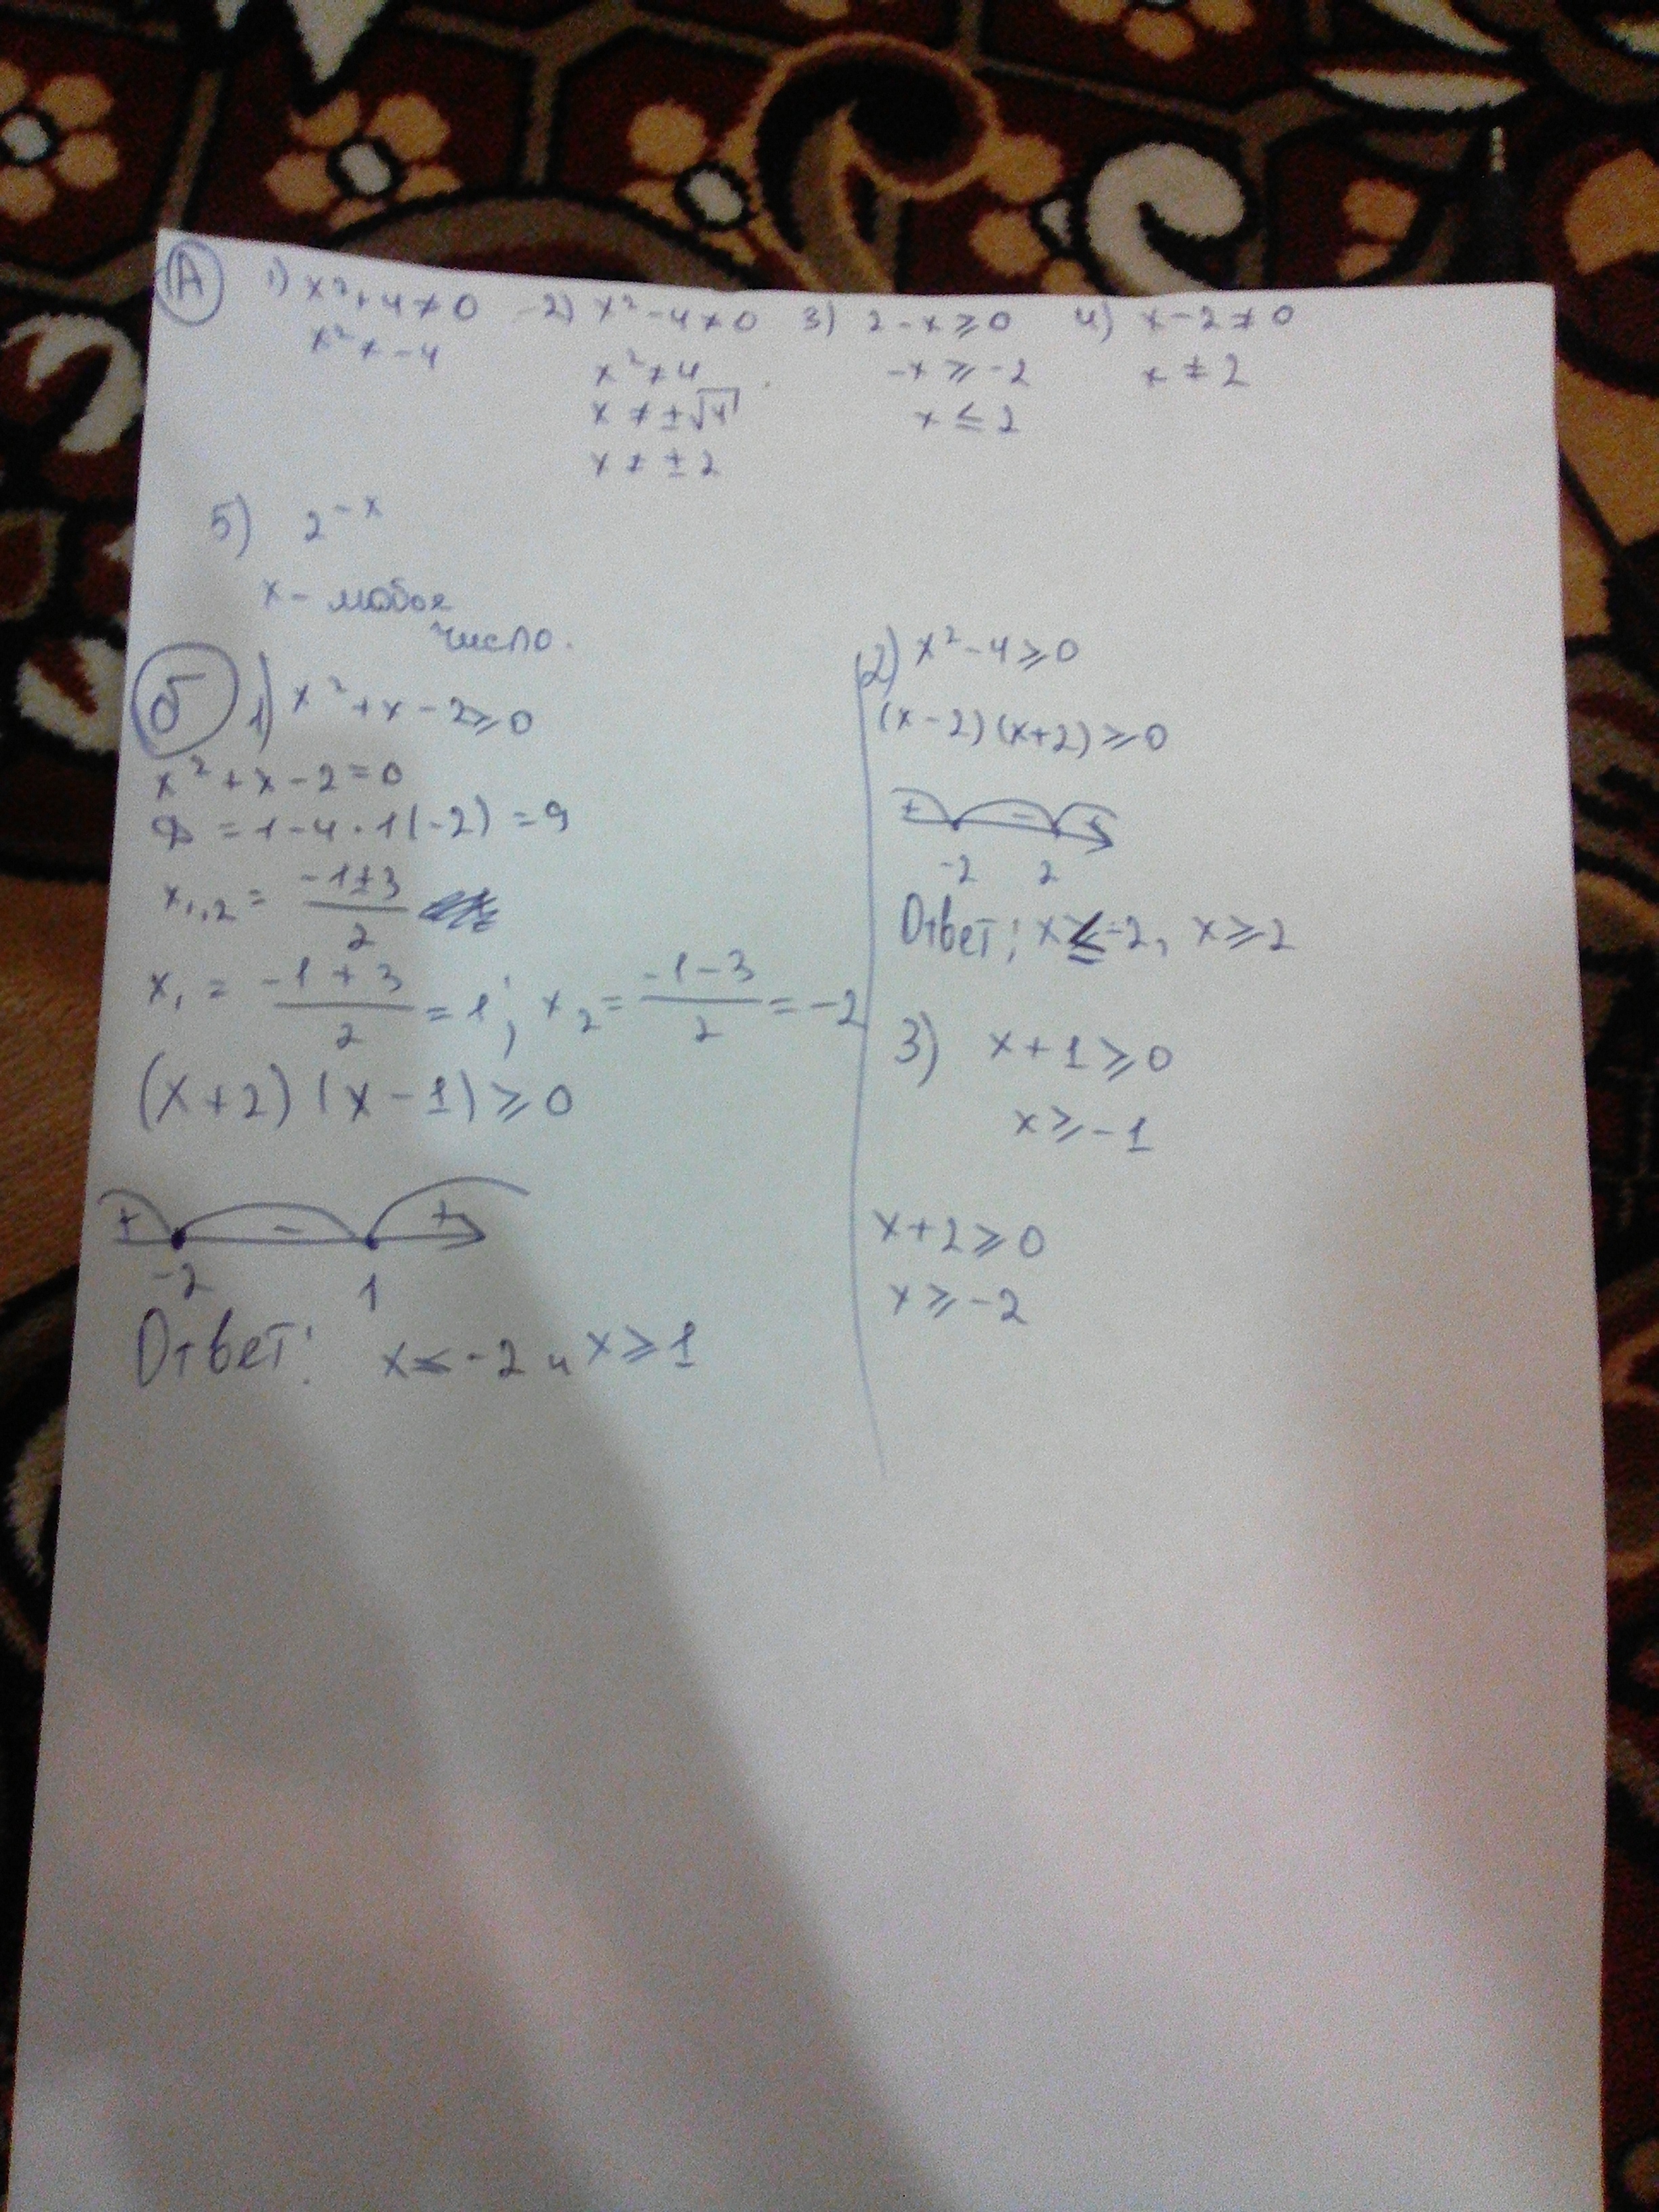 А 1) x² + 4 ≠ 0 2) x² - 4 ≠ 0 3) 2 - x ≥ 0 4) x - 2 ≠ 0
x² ≠ -4
x² ≠ 4
x ≠ ±√4
x ≠ ± 2
-x ≥ -2
x ≤ 2
x ≠ 2
5) 2^(-x)
x - любое
число.
б 1) x² + x - 2 ≥ 0
x² + x - 2 = 0
D = 1 - 4 · 1(-2) = 9
x₁,₂ = (-1 ± 3)/2
x₁ = (-1 + 3)/2 = 1; x₂ = (-1 - 3)/2 = -2
(x+2)(x-1) ≥ 0
+ - +
-2 1
Ответ: x ≤ -2 и x ≥ 1
2) x² - 4 ≥ 0
(x-2)(x+2) ≥ 0
+ - +
-2 2
Ответ: x ≤ -2, x ≥ 2
3) x + 1 ≥ 0
x ≥ -1
x + 2 ≥ 0
x ≥ -2